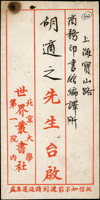 上海寶山路
商務印書館編譯所
胡適之先生台啟
北京大學
第一院內
世界叢書社